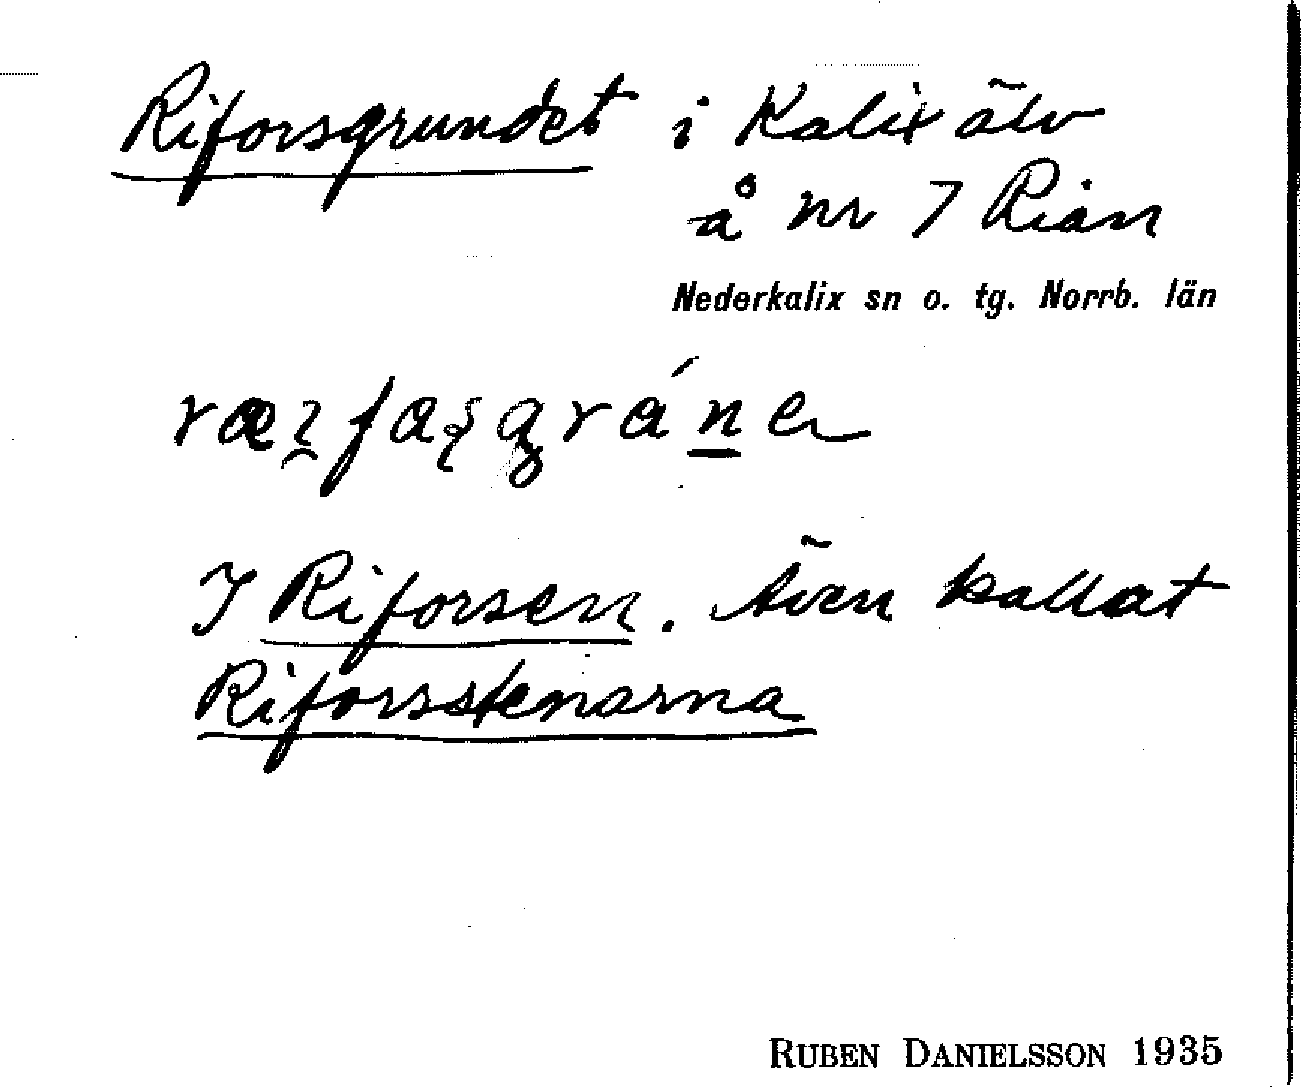 Riforsgrundet i Kalix älv
å nr 7 Riån
Nederkalix sn o. tg. Norrb. län
I Riforsen. Även kallat
Riforsstenarna
RUBEN DANIELSSON 1935